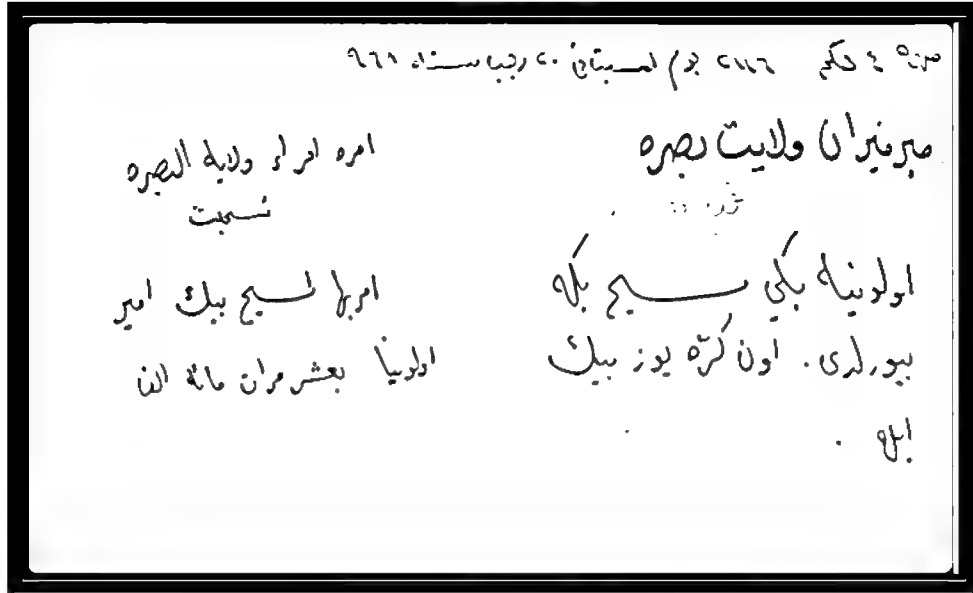 ٤ حكم يوم ٢٠ رجب سنة ٩٦١
ميرميران ولايت بصره
اولونيه بكي مسيح بكه
بيورلدى . اون كره يوز بيك
ايله .
امره امراء ولاية البصره
امر بها لمسيح بيك امير
اولونيا بعشر مرات مائة الف